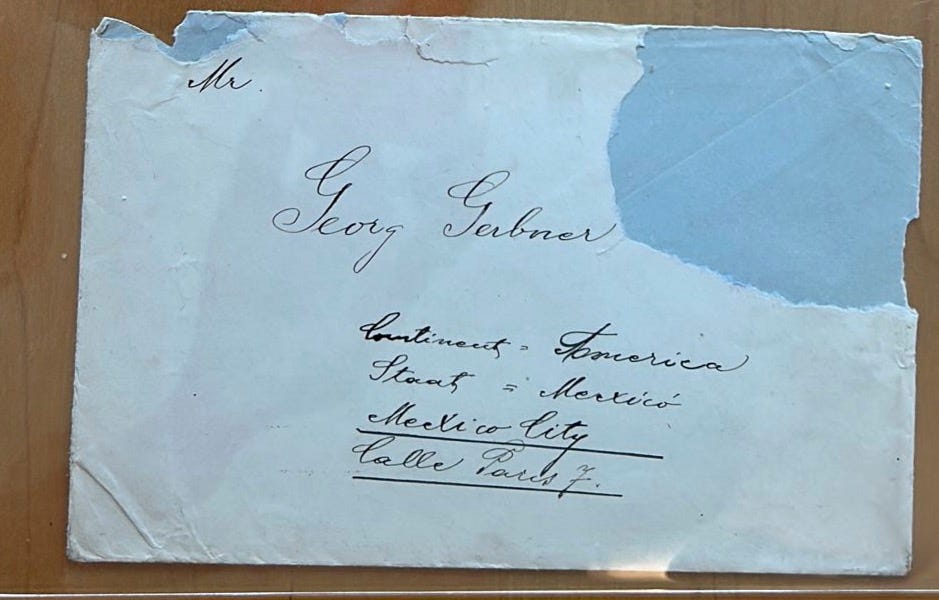 Mr.
Georg Gerbner
Continent = America
Staat = Mexicó
Mexico City
Calle Paris 7.